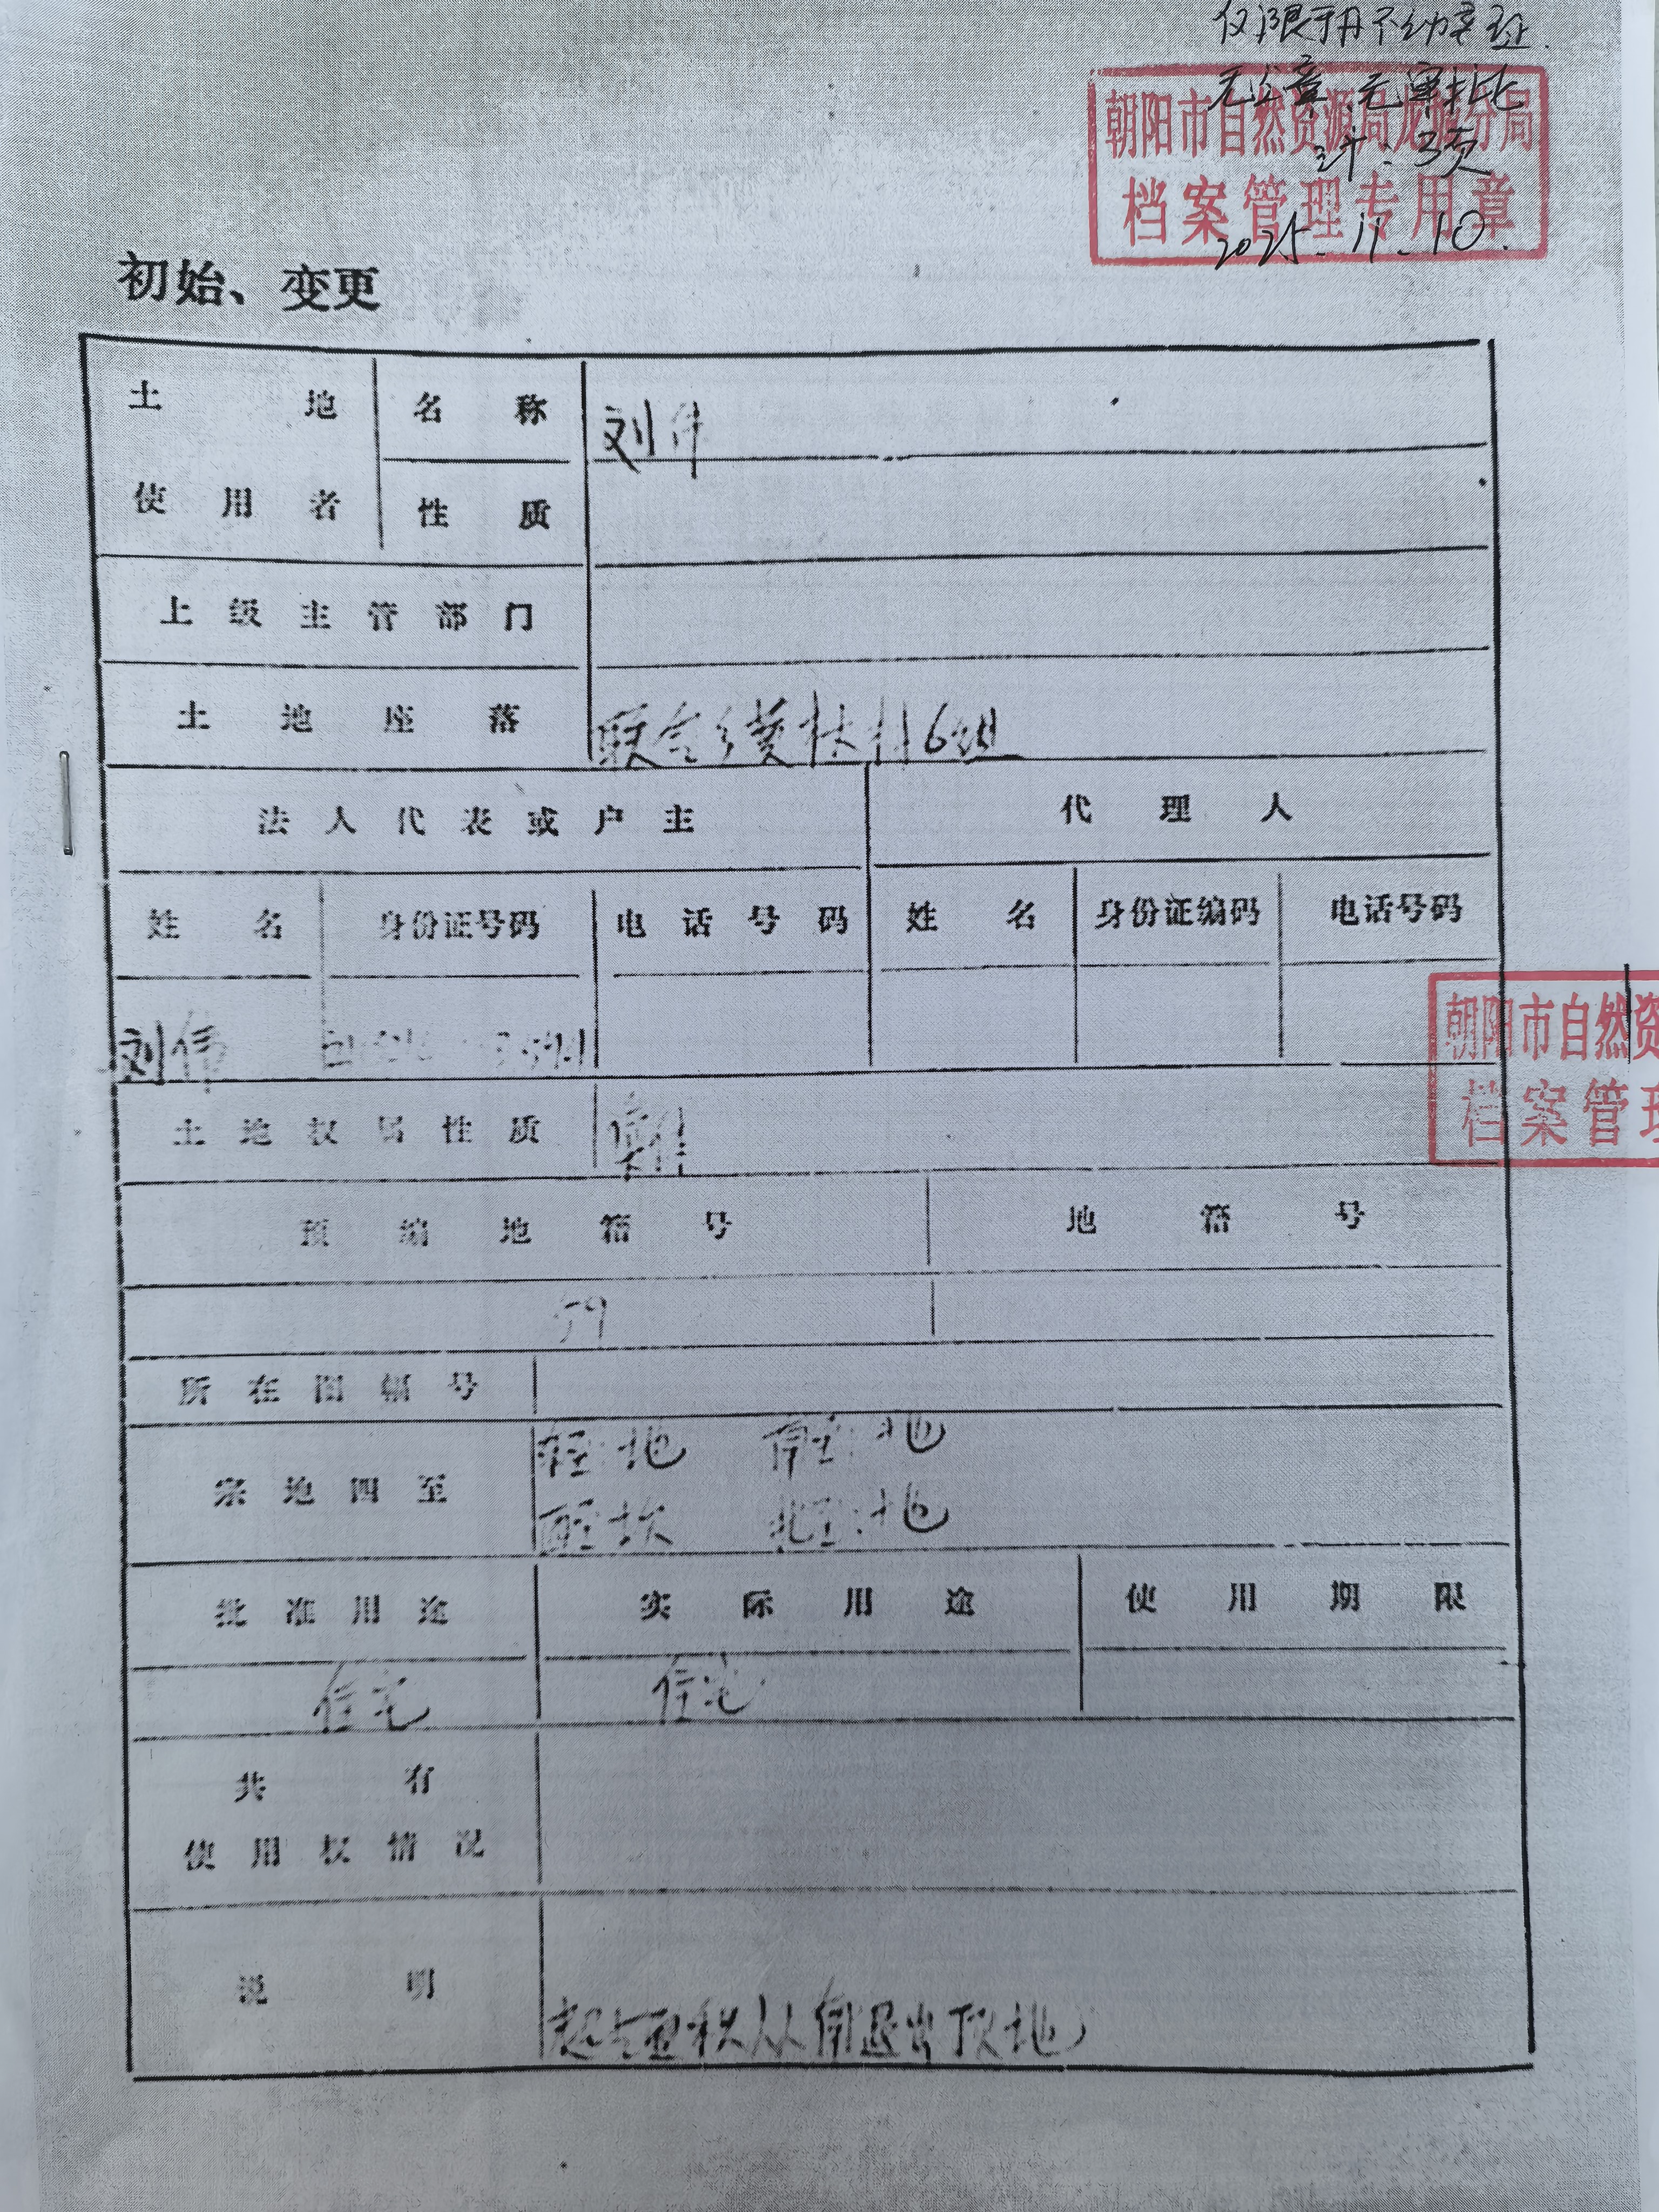 仅限于用不动产证.
无公章、无审批
计:3页
2025.11.10.
朝阳市自然资源局龙城分局
档案管理专用章
初始、变更
土地使用者 名称 刘伟
性质
上级主管部门
土地座落 联合乡 村6组
法人代表或户主 代理人
姓名 身份证号码 电话号码 姓名 身份证编码 电话号码
刘伟
朝阳市自然资
档案管理
土地权属性质
预编地籍号 地籍号
59
所在图幅号
宗地四至 东至:地 南至:地
西至:坎 北至:地
批准用途 实际用途 使用期限
住宅 住宅
共有
使用权情况
说明 超占面积从南退出 地